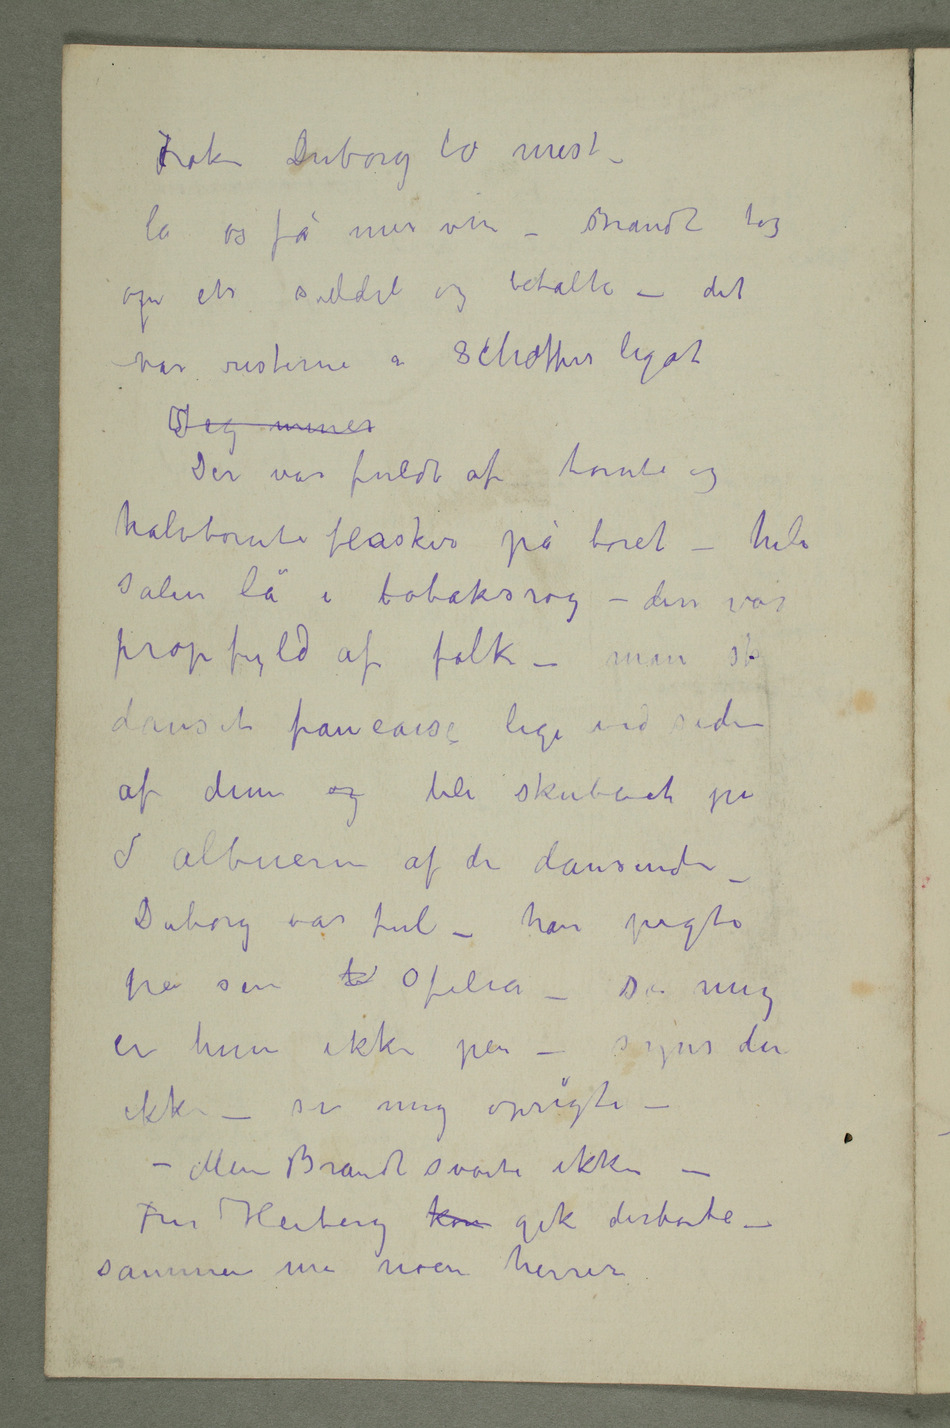 Frøken Duborg lo mest –
la os få mer vin – Brandt tog
op en sæddel og betalte – det
var resterne a Schæffers legat
Jeg mines
Der var fuldt af tomte og
halvtomte flasker på boret – hele
salen lå i tobaksrøg – den var
propfyld af folk – man
danset francaise lige ved siden
af dem og ble skubbet på
albuerne af de dansende –
Duborg var ful – han pegte
på sin Ofelia – Si mig
er hun ikke pen – syns du
ikke – si mig oprigti –
– Men Brandt svarte ikke –
Fru Heiberg kom gik derborte –
sammen me noen herrer